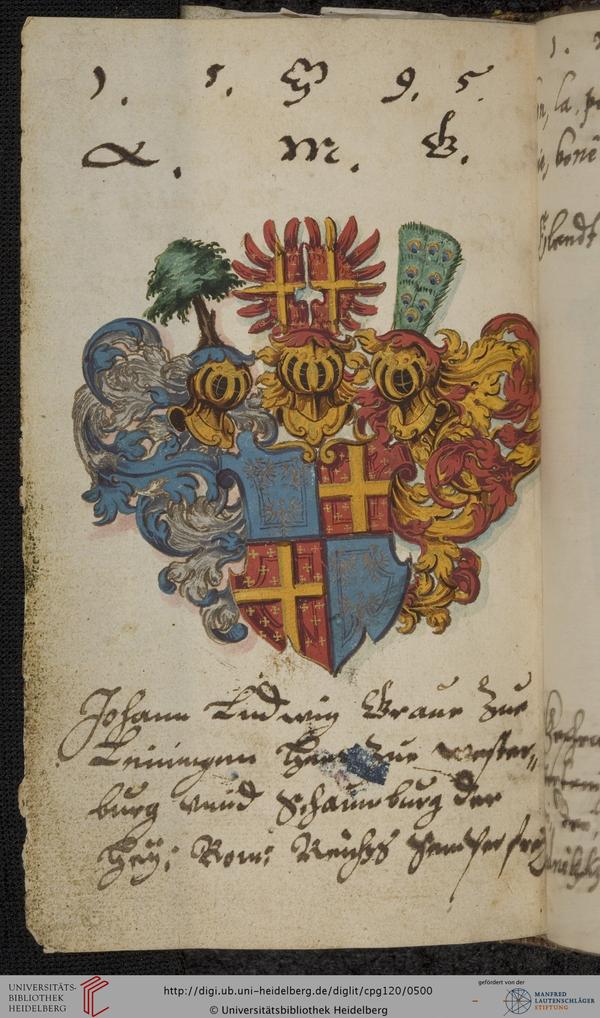 1. 5. 9. 5.
M. G.
Johann Ludwig Graue Zue
Leiningenn Herr Zue Wester„
burg vnnd Schaumburg der
Hey: Rom: Reichs Semperfrey
1.
la,
bone
landt
UNIVERSITÄTS-
BIBLIOTHEK
HEIDELBERG
http://digi.ub.uni-heidelberg.de/diglit/cpg120/0500
© Universitätsbibliothek Heidelberg
gefördert von der
MANFRED
LAUTENSCHLÄGER
STIFTUNG